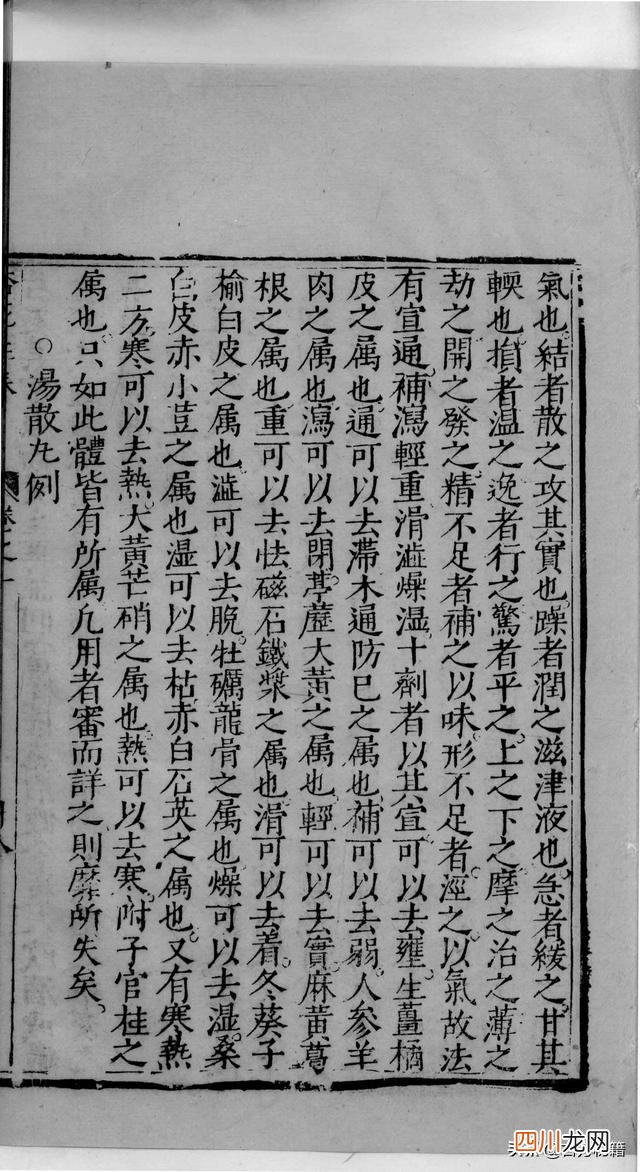 氣也結者散之攻其實也躁者潤之滋津液也急者緩之甘其
輭也損者温之逸者行之驚者平之上之下之摩之治之薄之
劫之開之發之精不足者補之以味形不足者溼之以氣故法
有宣通補瀉輕重滑澁燥湿十劑者以其宣可以去壅生薑橘
皮之属也通可以去滯木通防巳之属也補可以去弱人參羊
肉之属也瀉可以去閉葶藶大黃之属也輕可以去實麻黃葛
根之属也重可以去怯磁石鐵漿之属也滑可以去着冬葵子
榆白皮之属也澁可以去脫牡礪龍骨之属也燥可以去湿桑
白皮赤小荳之属也湿可以去枯赤白石英之属也又有寒熱
二方寒可以去熱大黃芒硝之属也熱可以去寒附子官桂之
属也只如此體皆有所属凡用者審而詳之則靡所失矣
○湯散丸例
四川龙网
头条